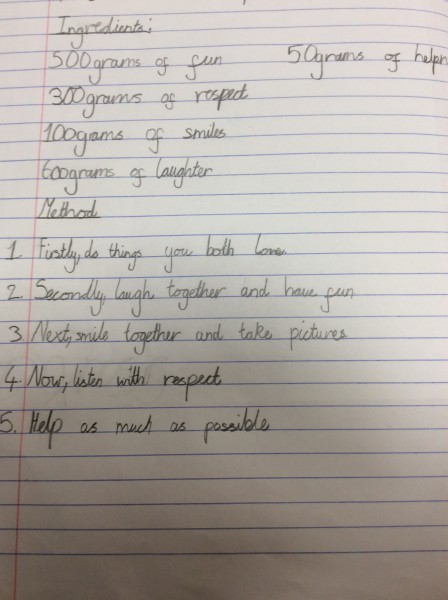 Ingredients:
500grams of fun 50grams of helpn
300grams of respect
100grams of smiles
600grams of laughter
Method
1. Firstly, do things you both love.
2. Secondly, laugh together and have fun
3. Next, smile together and take pictures
4. Now, listen with respect
5. Help as much as possible